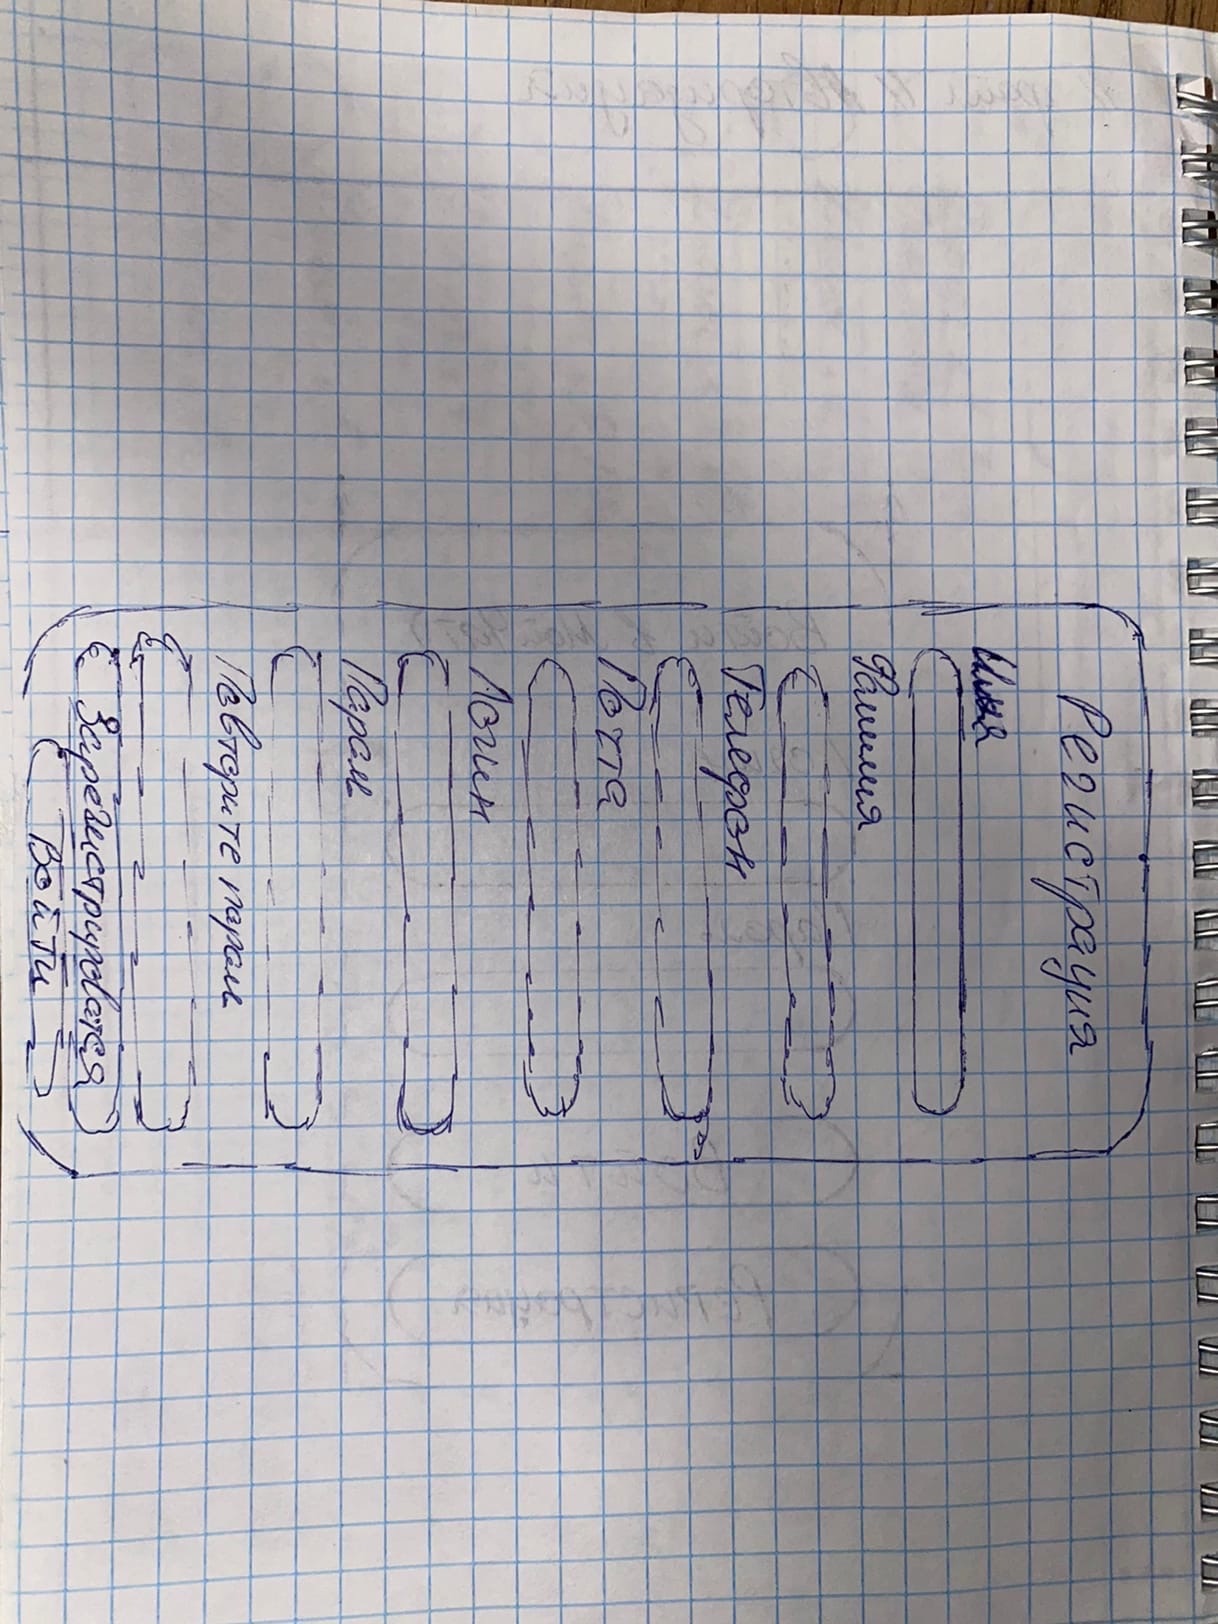 Регистрация
Имя
Фамилия
Телефон
Почта
Логин
Пароль
Повторите пароль
Зарегистрироваться
Войти